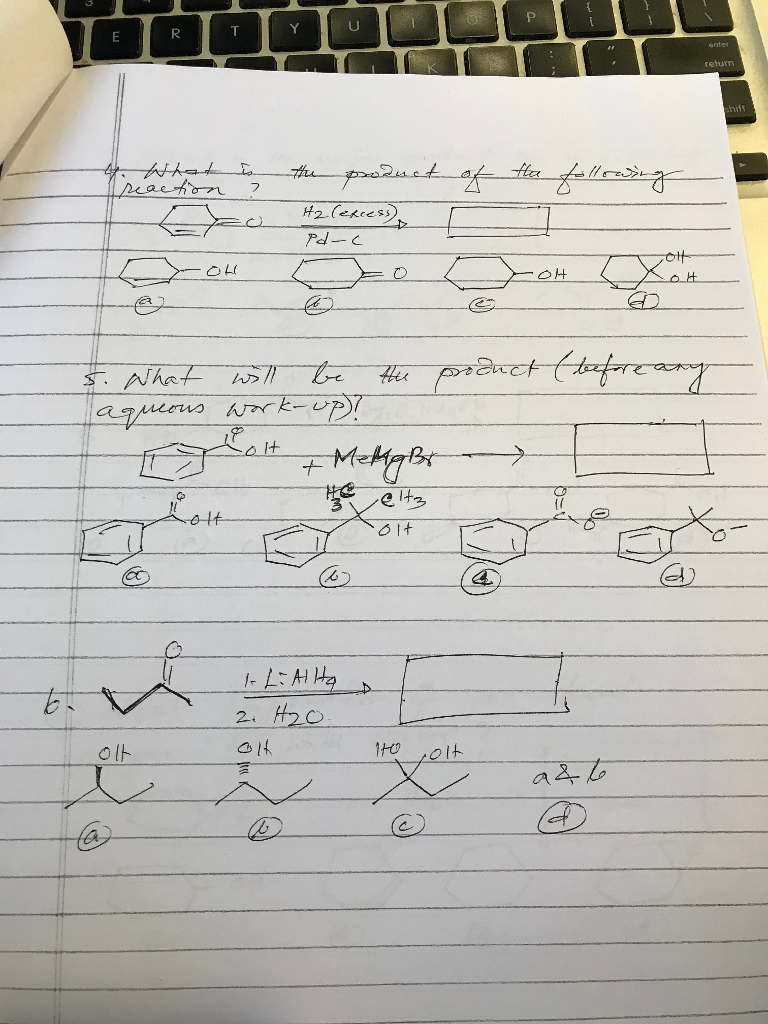 E R T Y U I O P { [ } ] | \
K : ; " ' enter return
shift
4. What is the product of the following
reaction ?
O H2 (excess)
Pd-C
OH O OH OH OH
a b c d
5. What will be the product (before any
aqueous work-up)?
O OH + MeMgBr
O OH H3C CH3 OH O C O⊖ O-
a b d
6. O 1. LiAlH4
2. H2O
OH OH HO OH a & b
a b c d